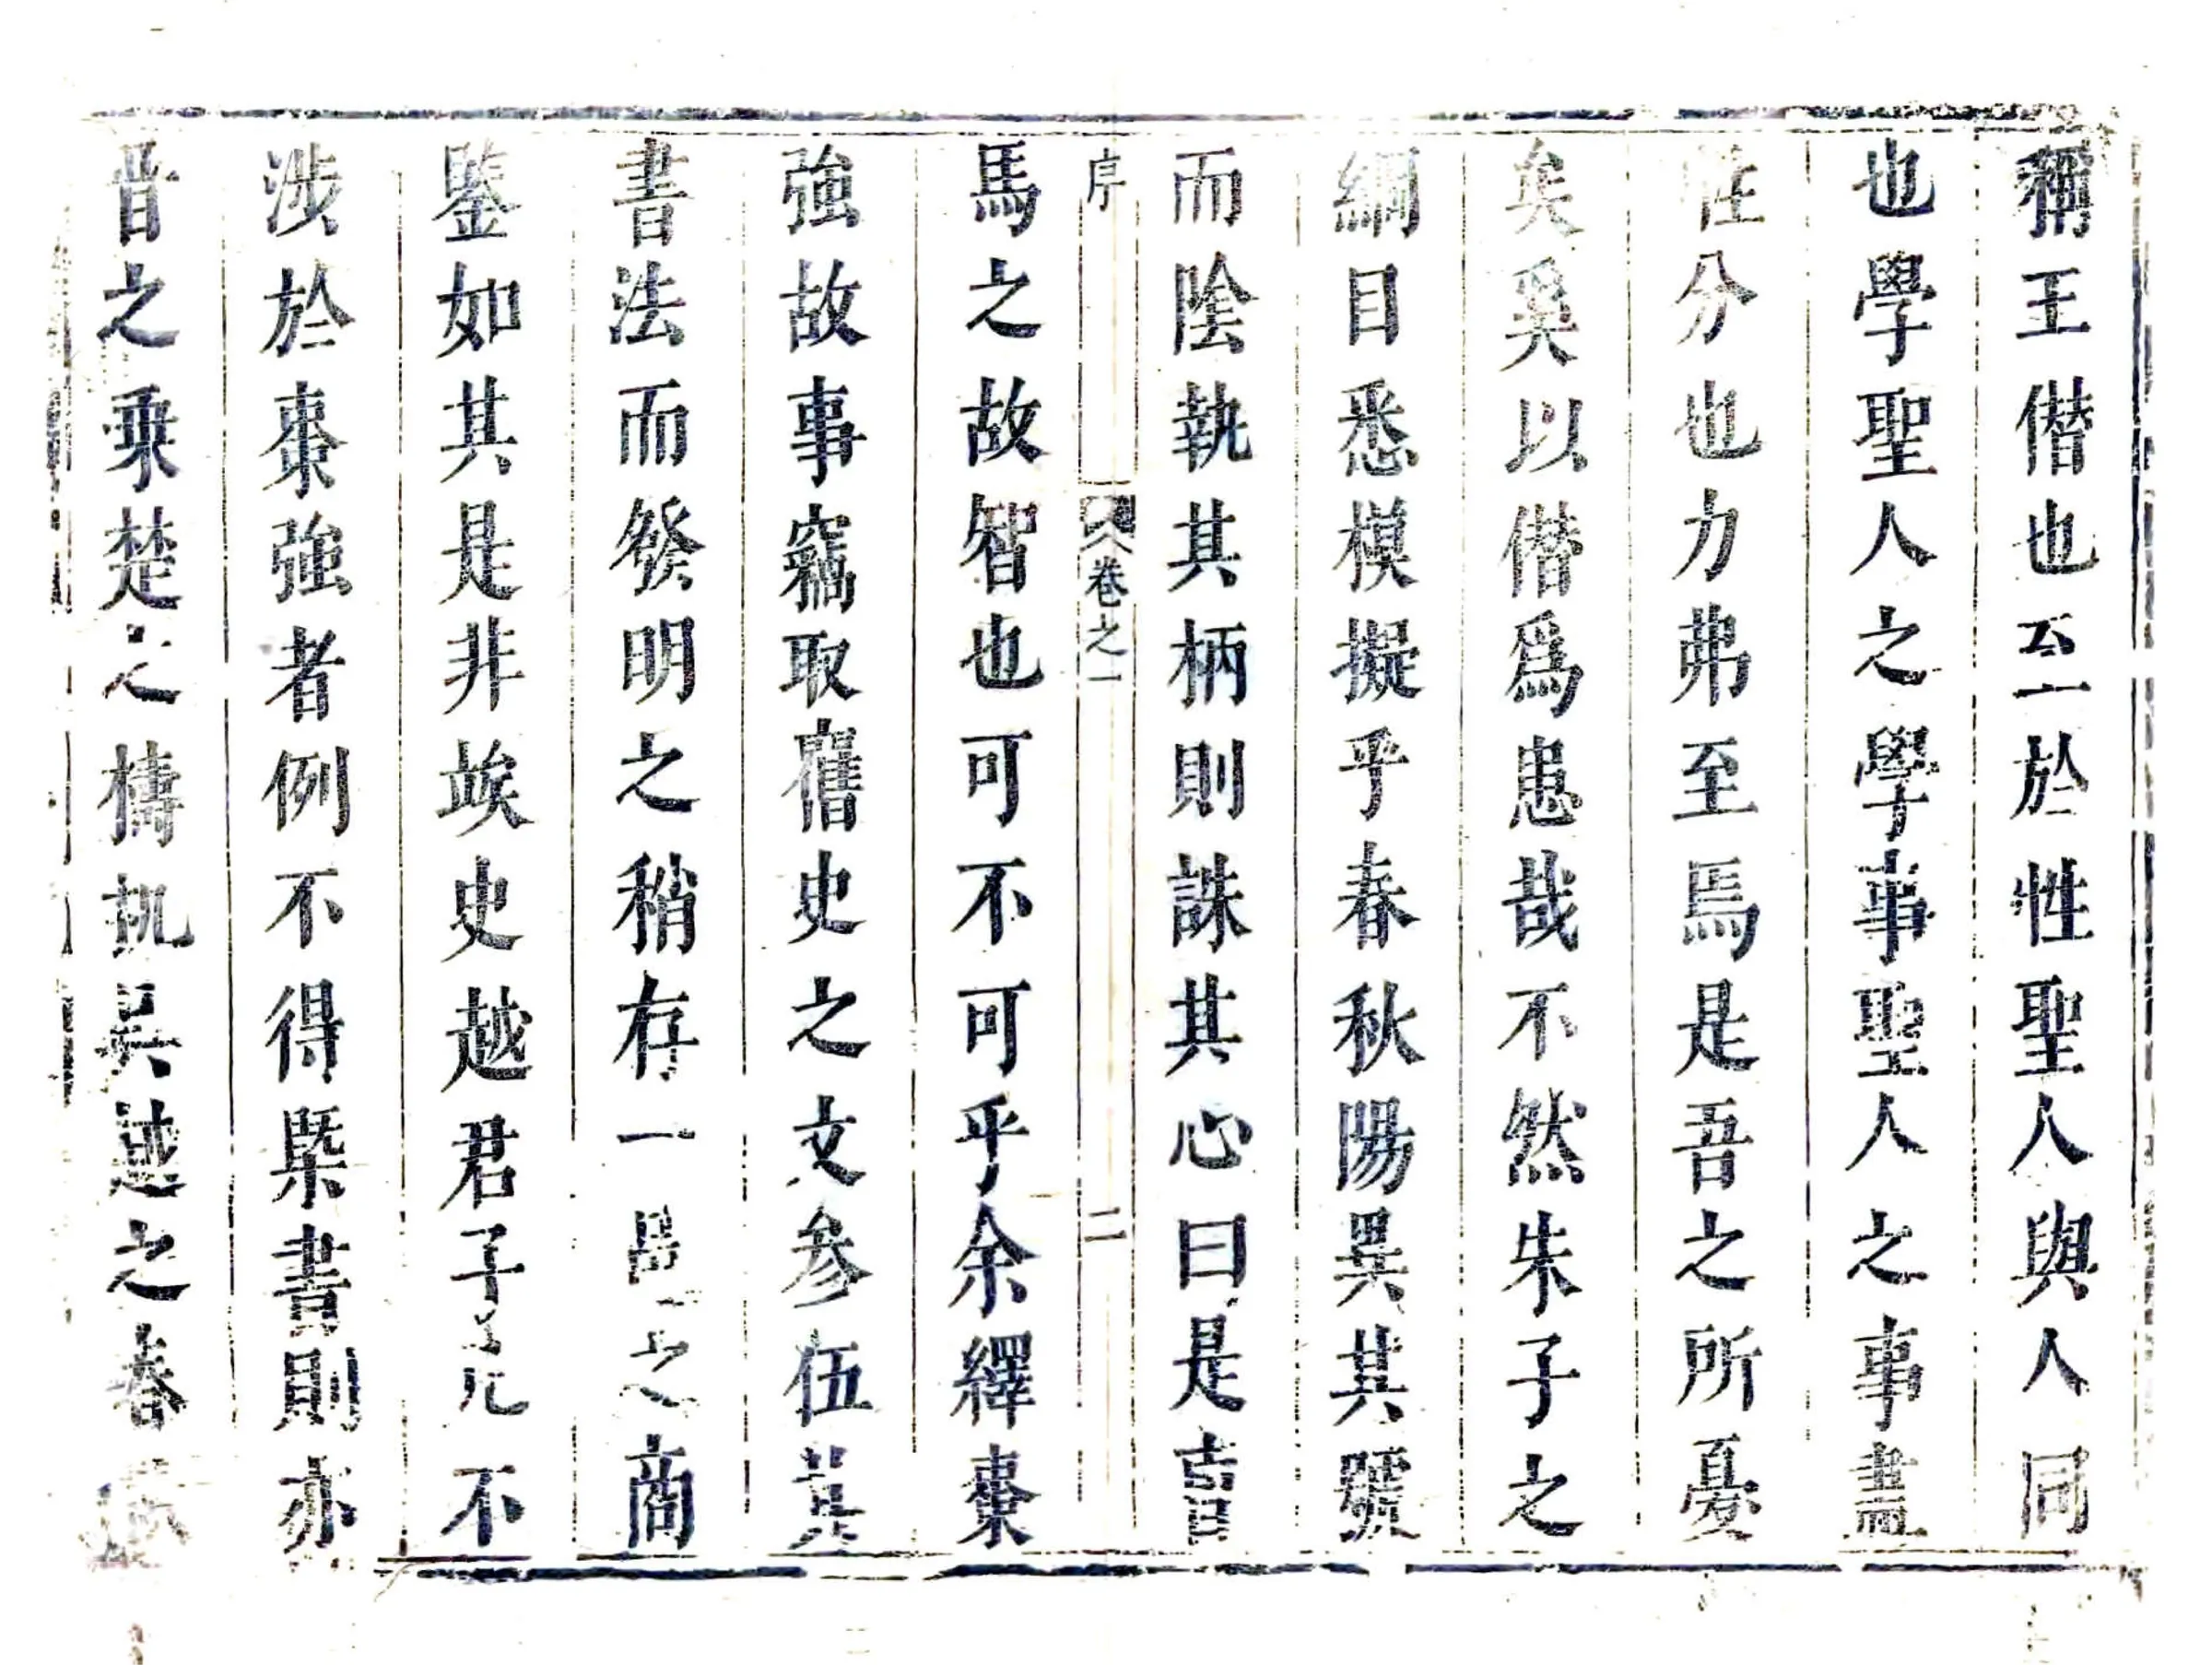 稱王僭也至於性聖人與人同
也學聖人之學事聖人之事盡
性分也力弗至焉是吾之所憂
矣奚以僭爲患哉不然朱子之
綱目悉模擬乎春秋陽異其號
而陰執其柄則誅其心曰是賣
序 卷之一 二
馬之故智也可不可乎余繹棗
強故事竊取舊史之文參伍其
書法而發明之稍存一 之商
鑒如其是非竢史越君子 不
涉於棗強者例不得槩書則亦
晉之乘楚之檮杌吳越之春